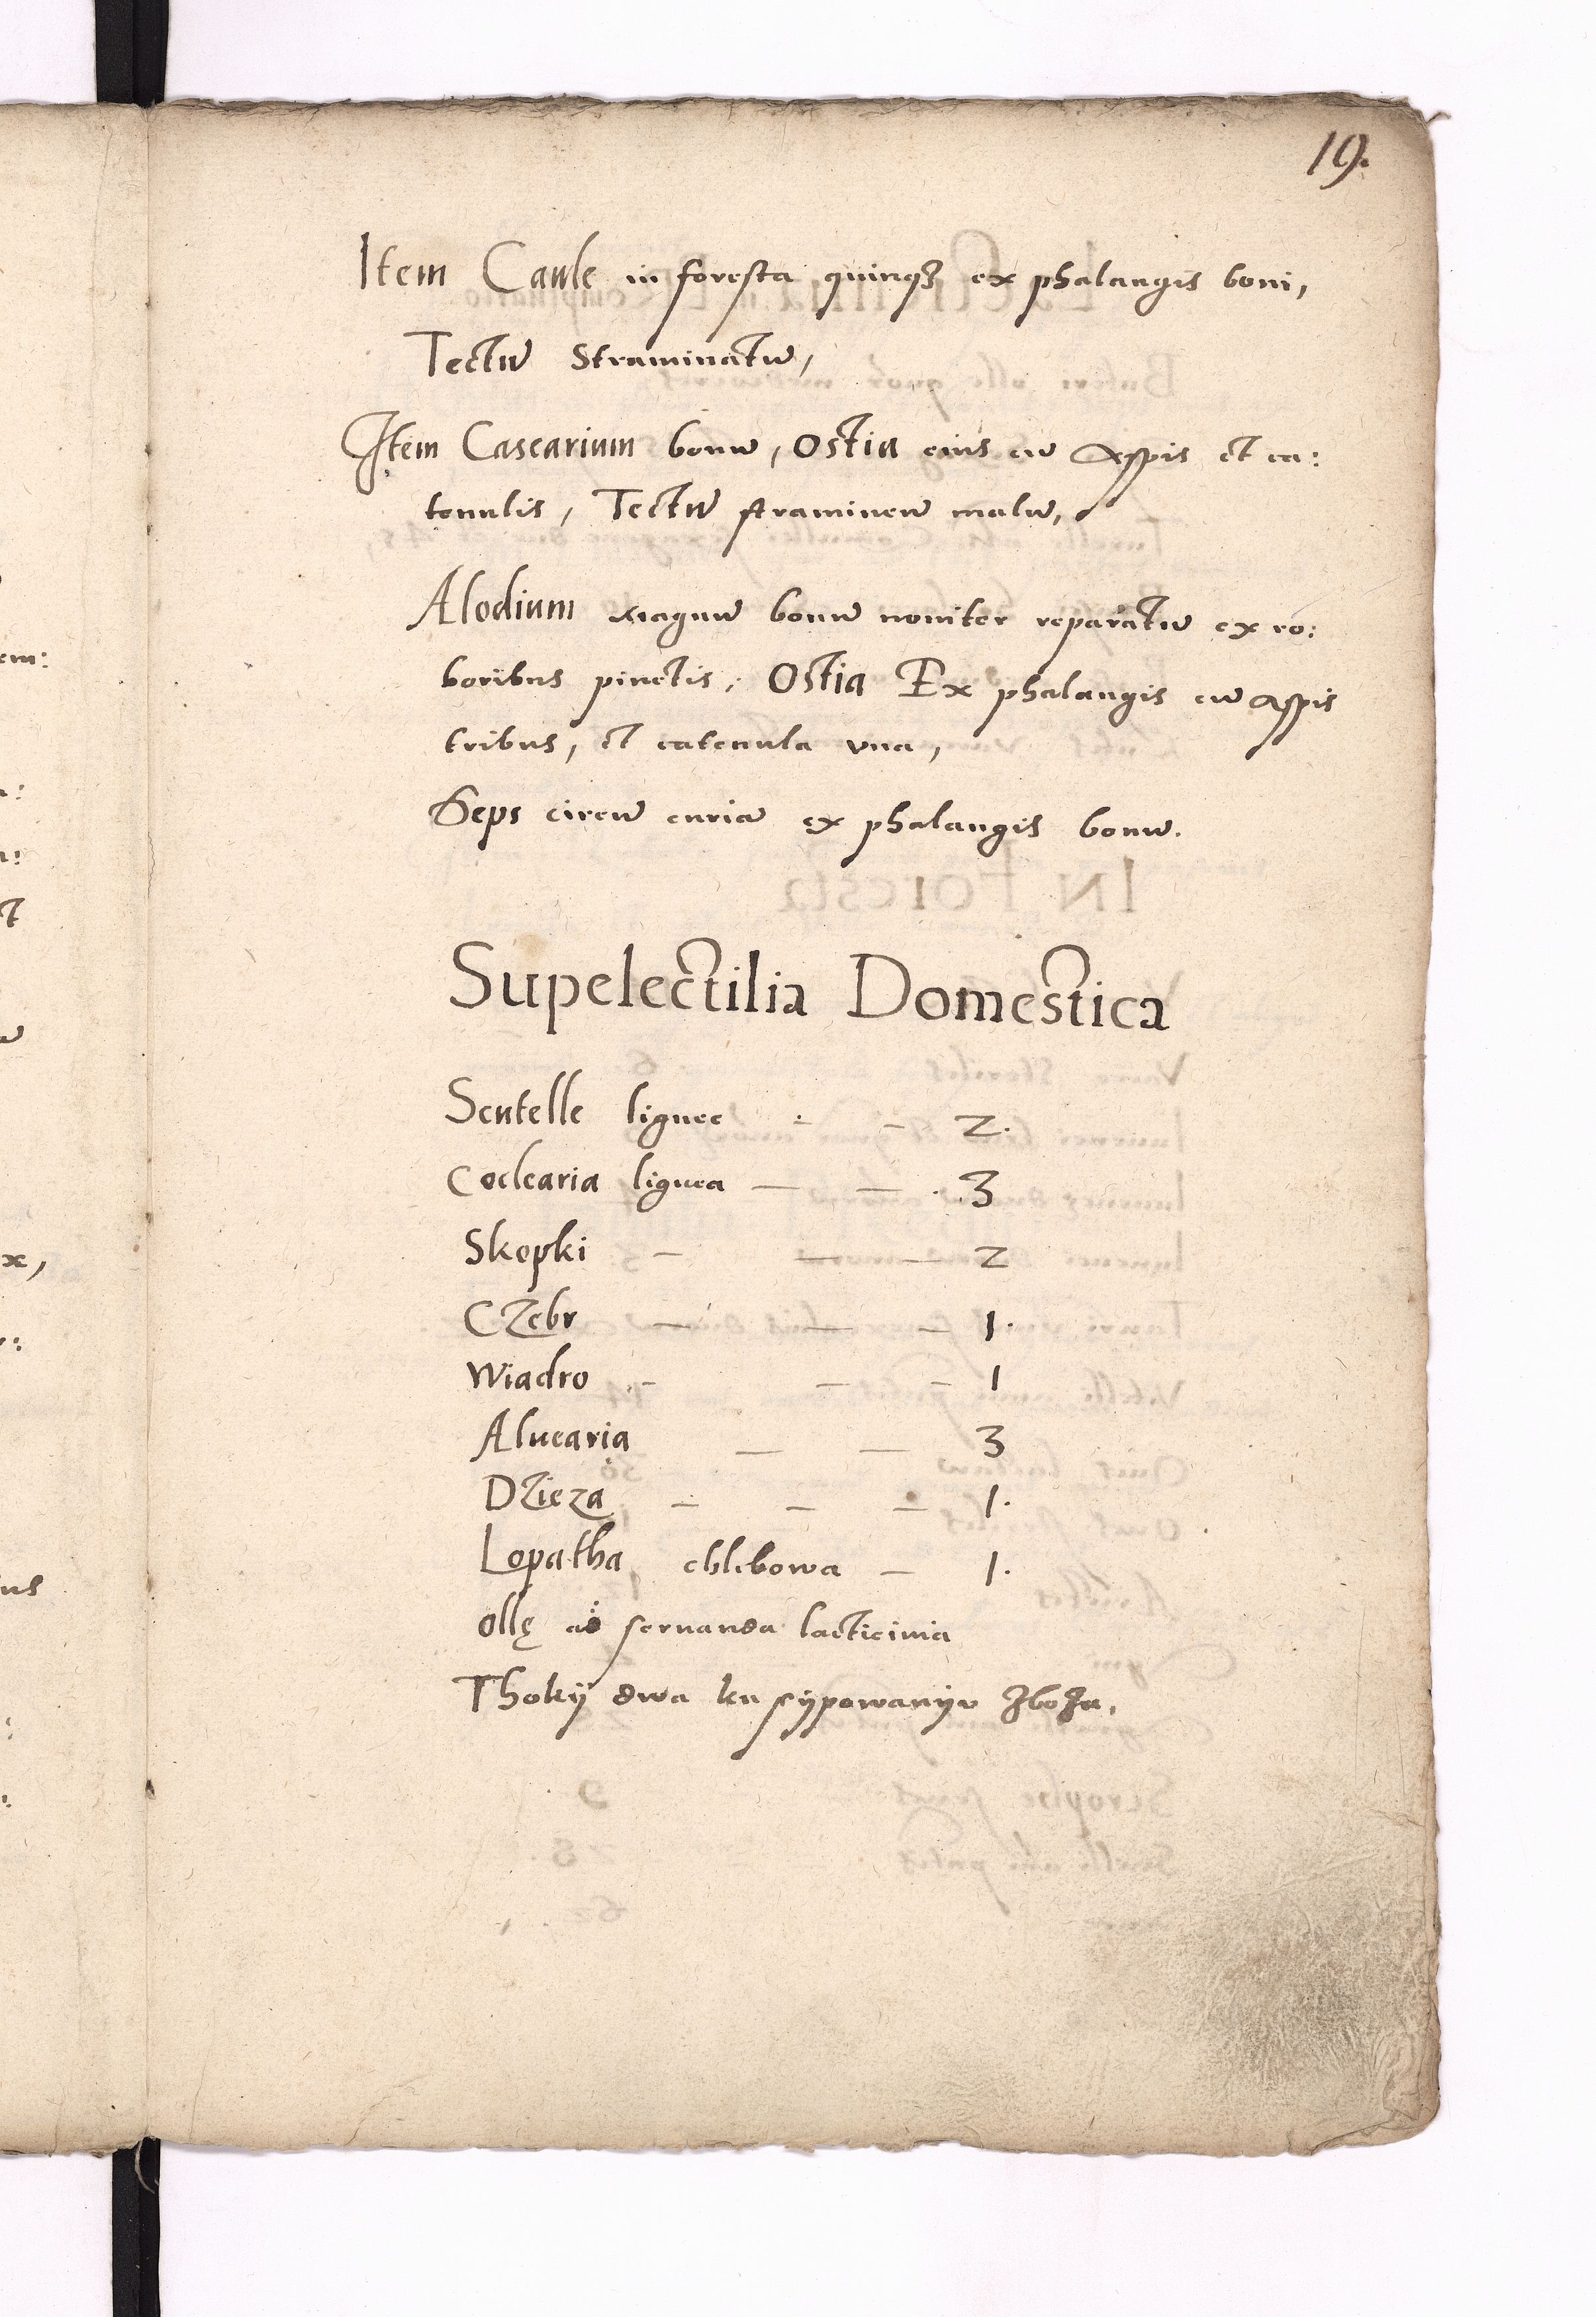 19.
Item Caule in foresta quinqꝫ ex phalangis boni,
Tectū Straminatū,
Item Casearium bonū, Ostia eius cū Aspis et ca:
tenulis, Tectū stramineū malū,
Alodium magnū bonū noniter reparatū ex ro:
boribus pinctis, Ostia Ex phalangis cū Aspis
tribus, et catenula vna,
Seps circū curiā ex phalangis bonū.
Supelectilia Domestica
Scutelle lignee - - 2.
Coclearia lignea — — 3
Skopki - — — 2
CZebr — — — 1.
Wiadro - — - 1
Aluearia — — 3
DZieza — — — 1.
Lopatha chlebowa — 1.
ollę ad seruanda lacticinia
Thokÿ dwa ku sÿpowanÿu ZboZa,